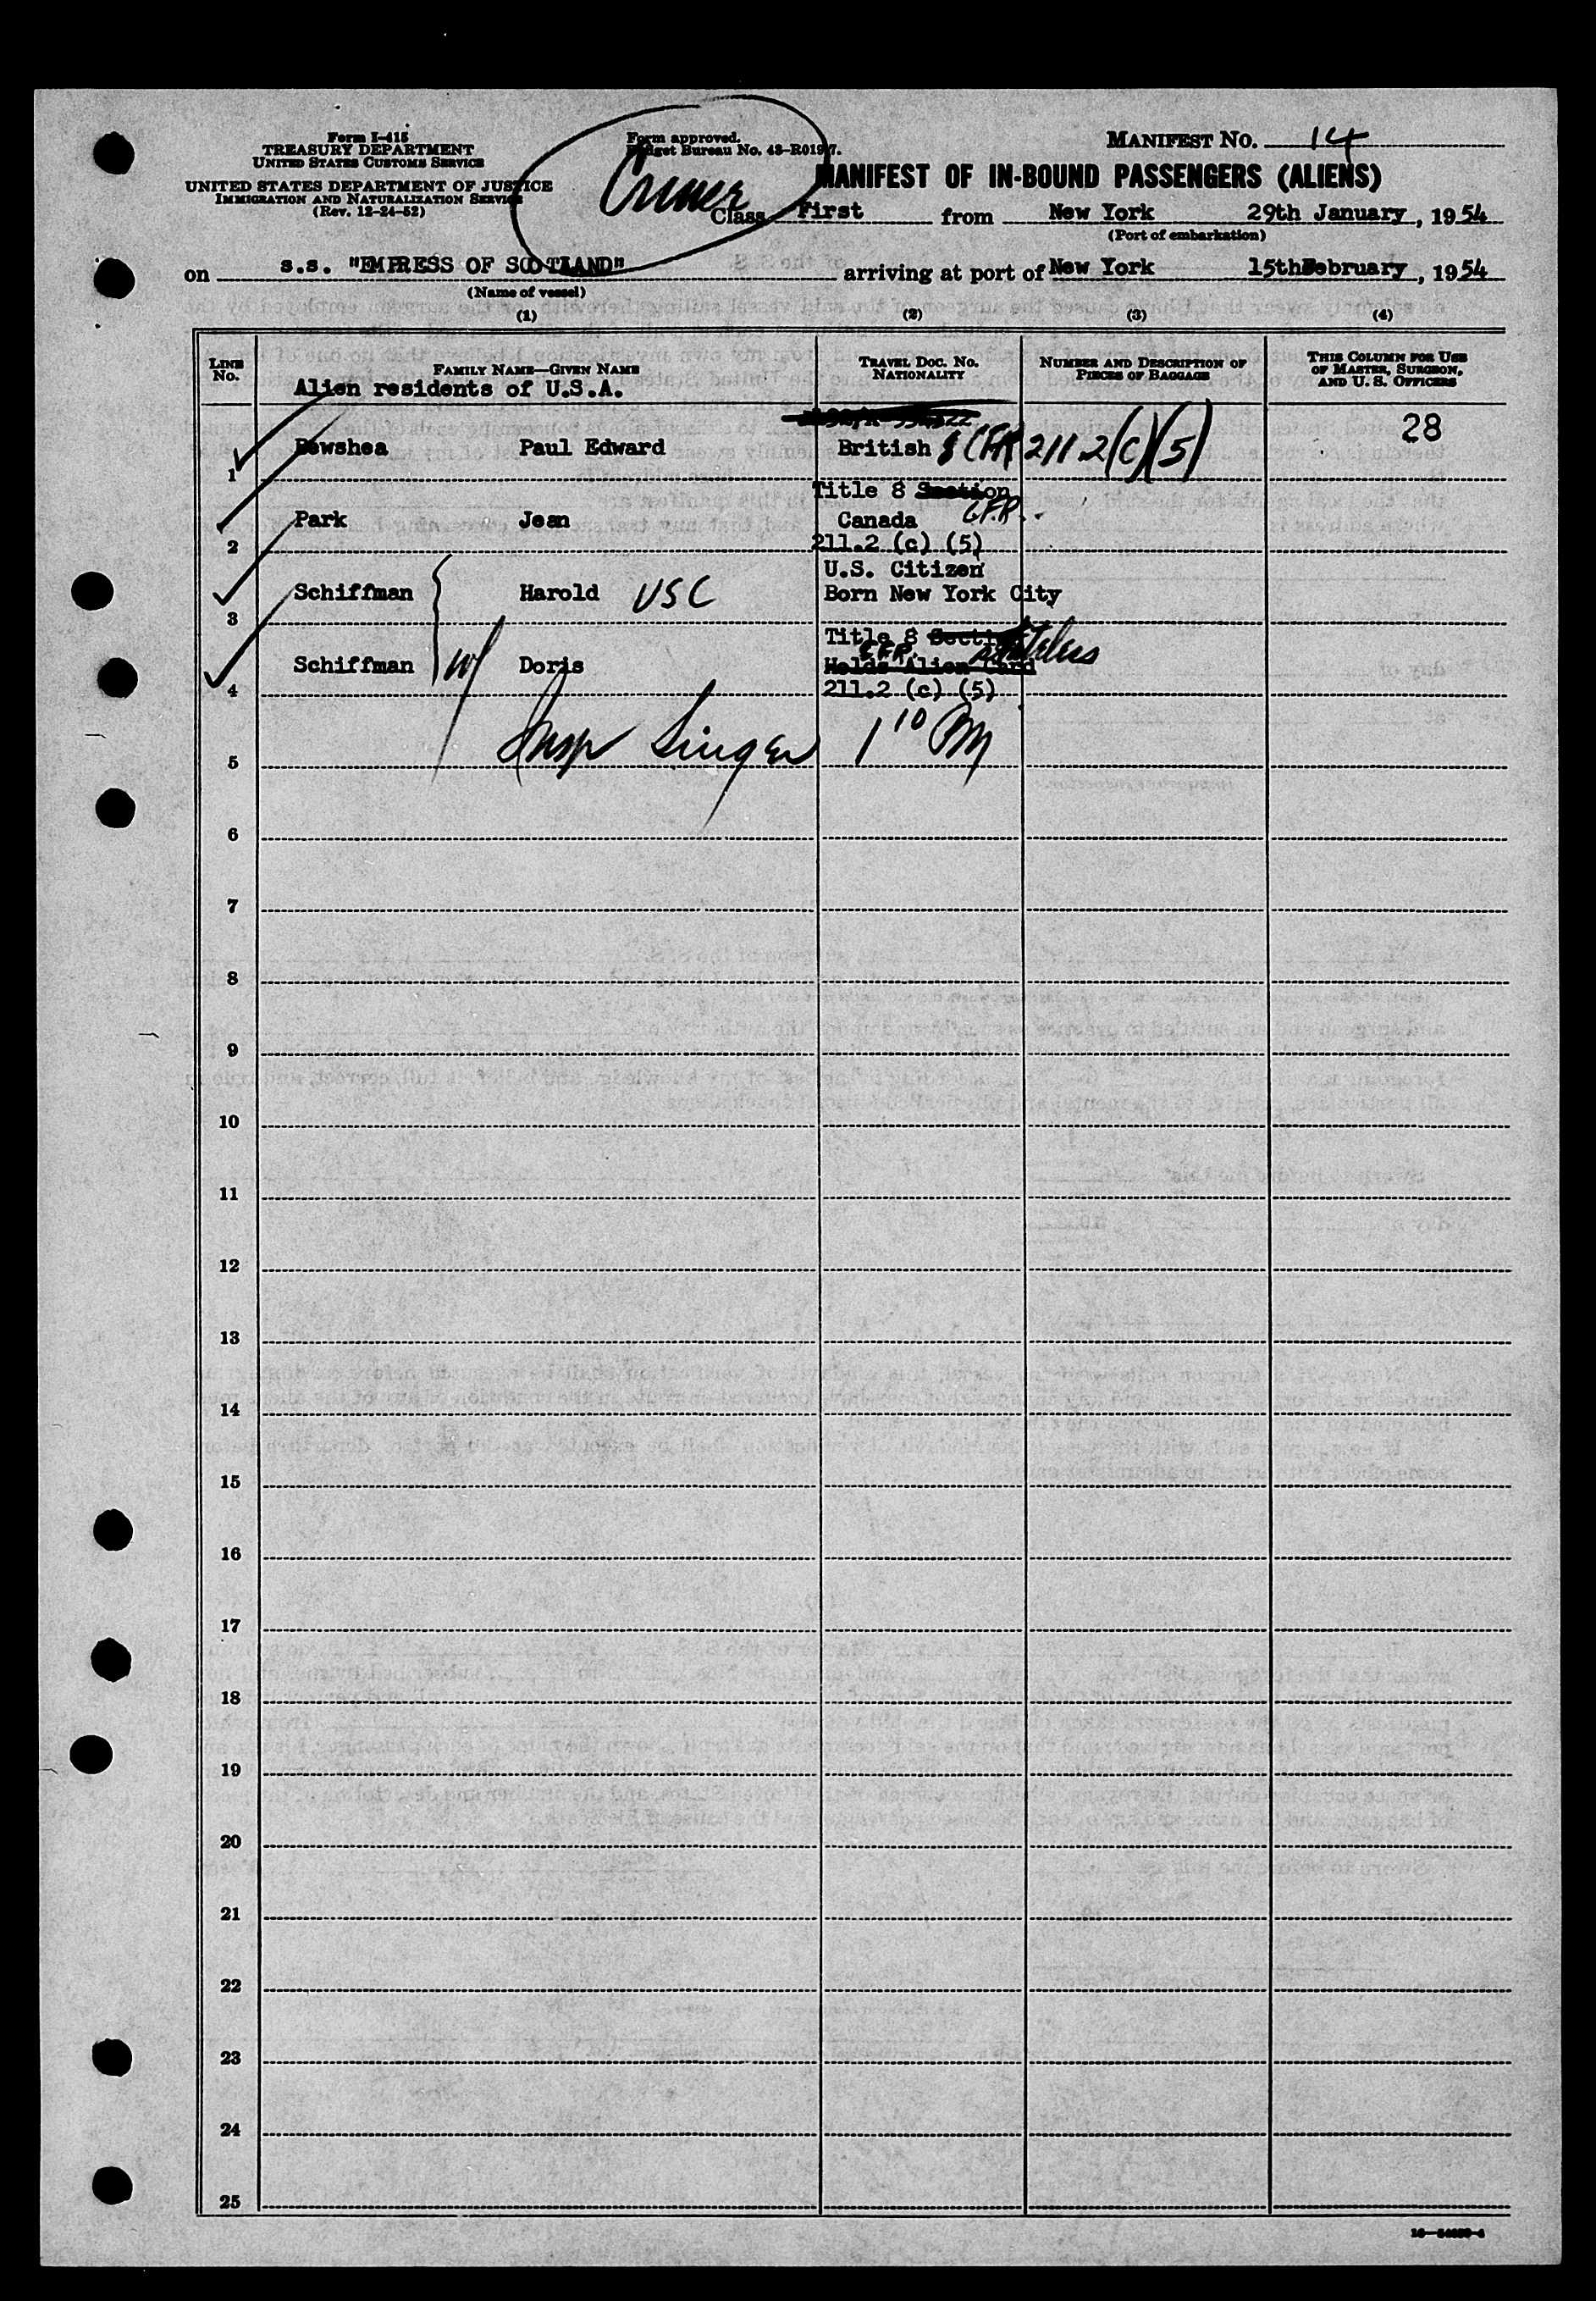 Form I-415
TREASURY DEPARTMENT
UNITED STATES CUSTOMS SERVICE
UNITED STATES DEPARTMENT OF JUSTICE
IMMIGRATION AND NATURALIZATION SERVICE
(Rev. 12-24-52)
Form approved.
Budget Bureau No. 43-R0197.
MANIFEST NO. 14
MANIFEST OF IN-BOUND PASSENGERS (ALIENS)
Class First from New York 29th January, 1954
(Port of embarkation)
on s.s. "EMPRESS OF SCOTLAND" arriving at port of New York 15th February, 1954
(Name of vessel)
(1) (2) (3) (4)
LINE No. FAMILY NAME—GIVEN NAME TRAVEL DOC. NO. NATIONALITY NUMBER AND DESCRIPTION OF PIECES OF BAGGAGE THIS COLUMN FOR USE OF MASTER, SURGEON, AND U. S. OFFICERS
Alien residents of U.S.A.
1 Bewshea Paul Edward British 8 CFR 211.2(c)(5) 28
Title 8 Section
CFR
2 Park Jean Canada
211.2 (c) (5)
U.S. Citizen
3 Schiffman Harold USC Born New York City
Title 8 Section
CFR
4 Schiffman W/ Doris Holds Alien Card
211.2 (c) (5)
5 Insp Singer 1 10 PM
6
7
8
9
10
11
12
13
14
15
16
17
18
19
20
21
22
23
24
25